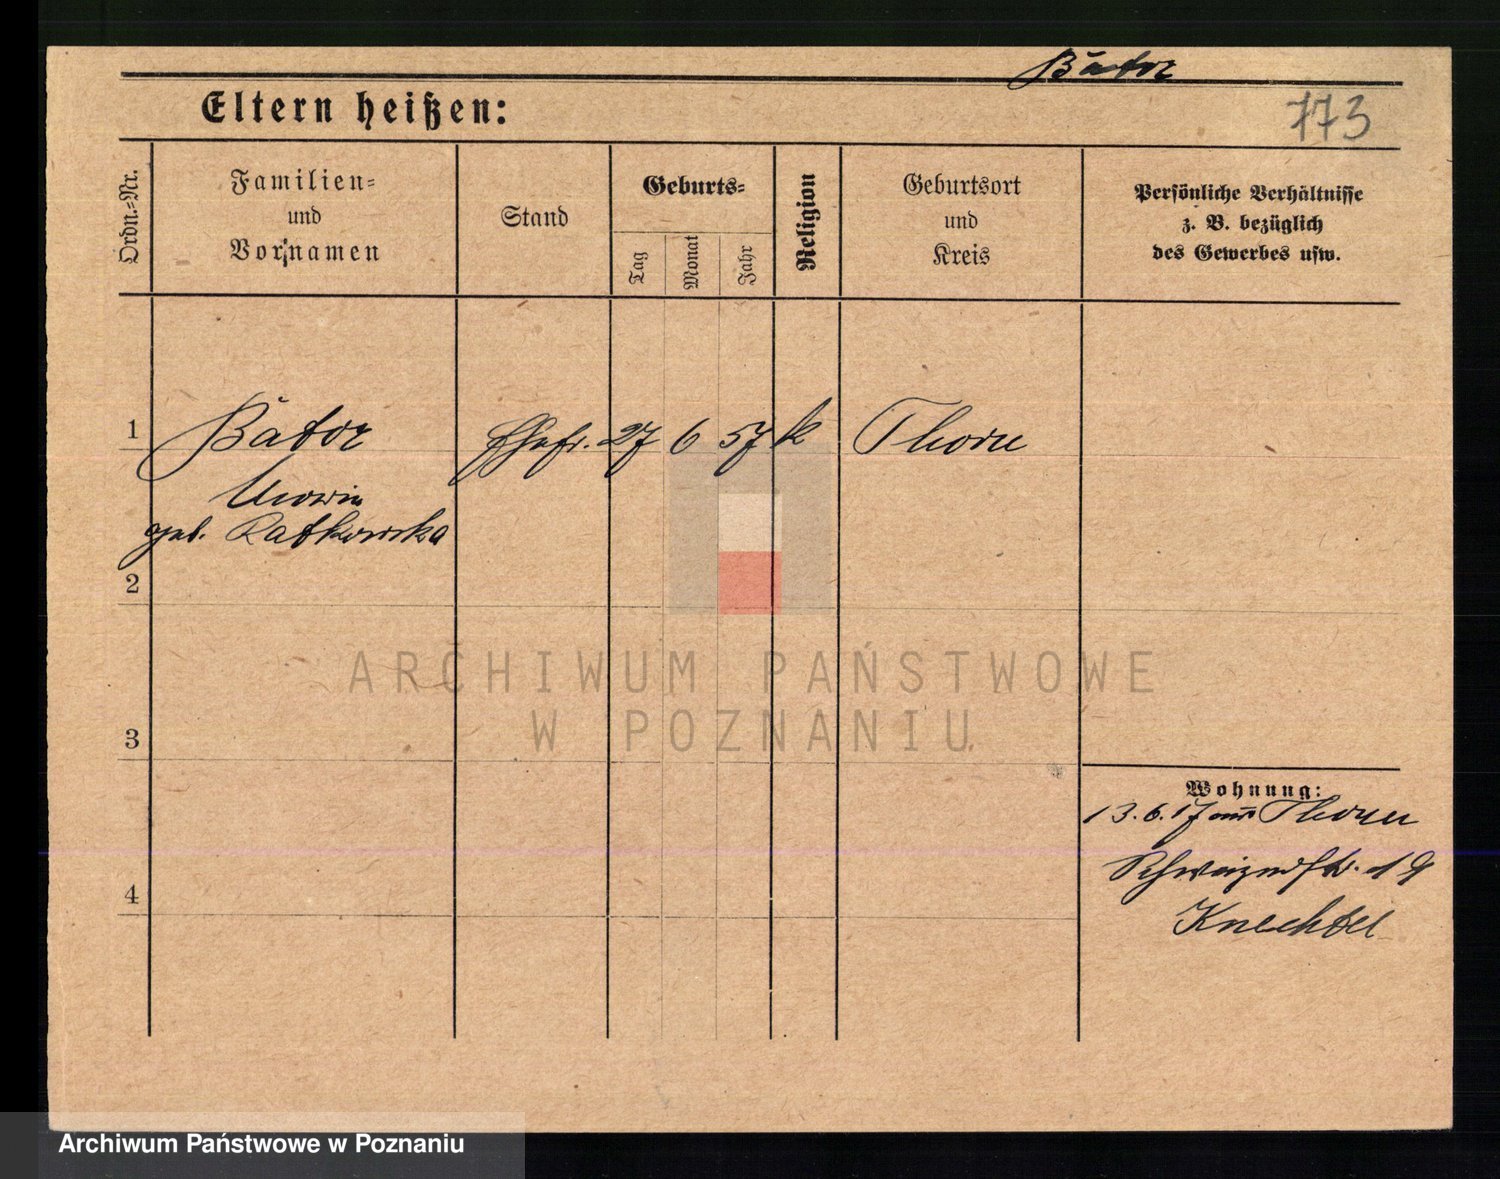 Bátor
Eltern heißen:
773
Ordn.-Nr.
Familien-
und
Vornamen
Stand
Geburts-
Tag
Monat
Jahr
Religion
Geburtsort
und
Kreis
Persönliche Verhältnisse
z. B. bezüglich
des Gewerbes usw.
1 Bátor Ehefr. 27 6 57 k Thorn
geb. Ratkowska
2
3
4
Wohnung:
13.6.17 aus Thorn
Schweizerstr. 19
Knechtel
ARCHIWUM PAŃSTWOWE
W POZNANIU
Archiwum Państwowe w Poznaniu